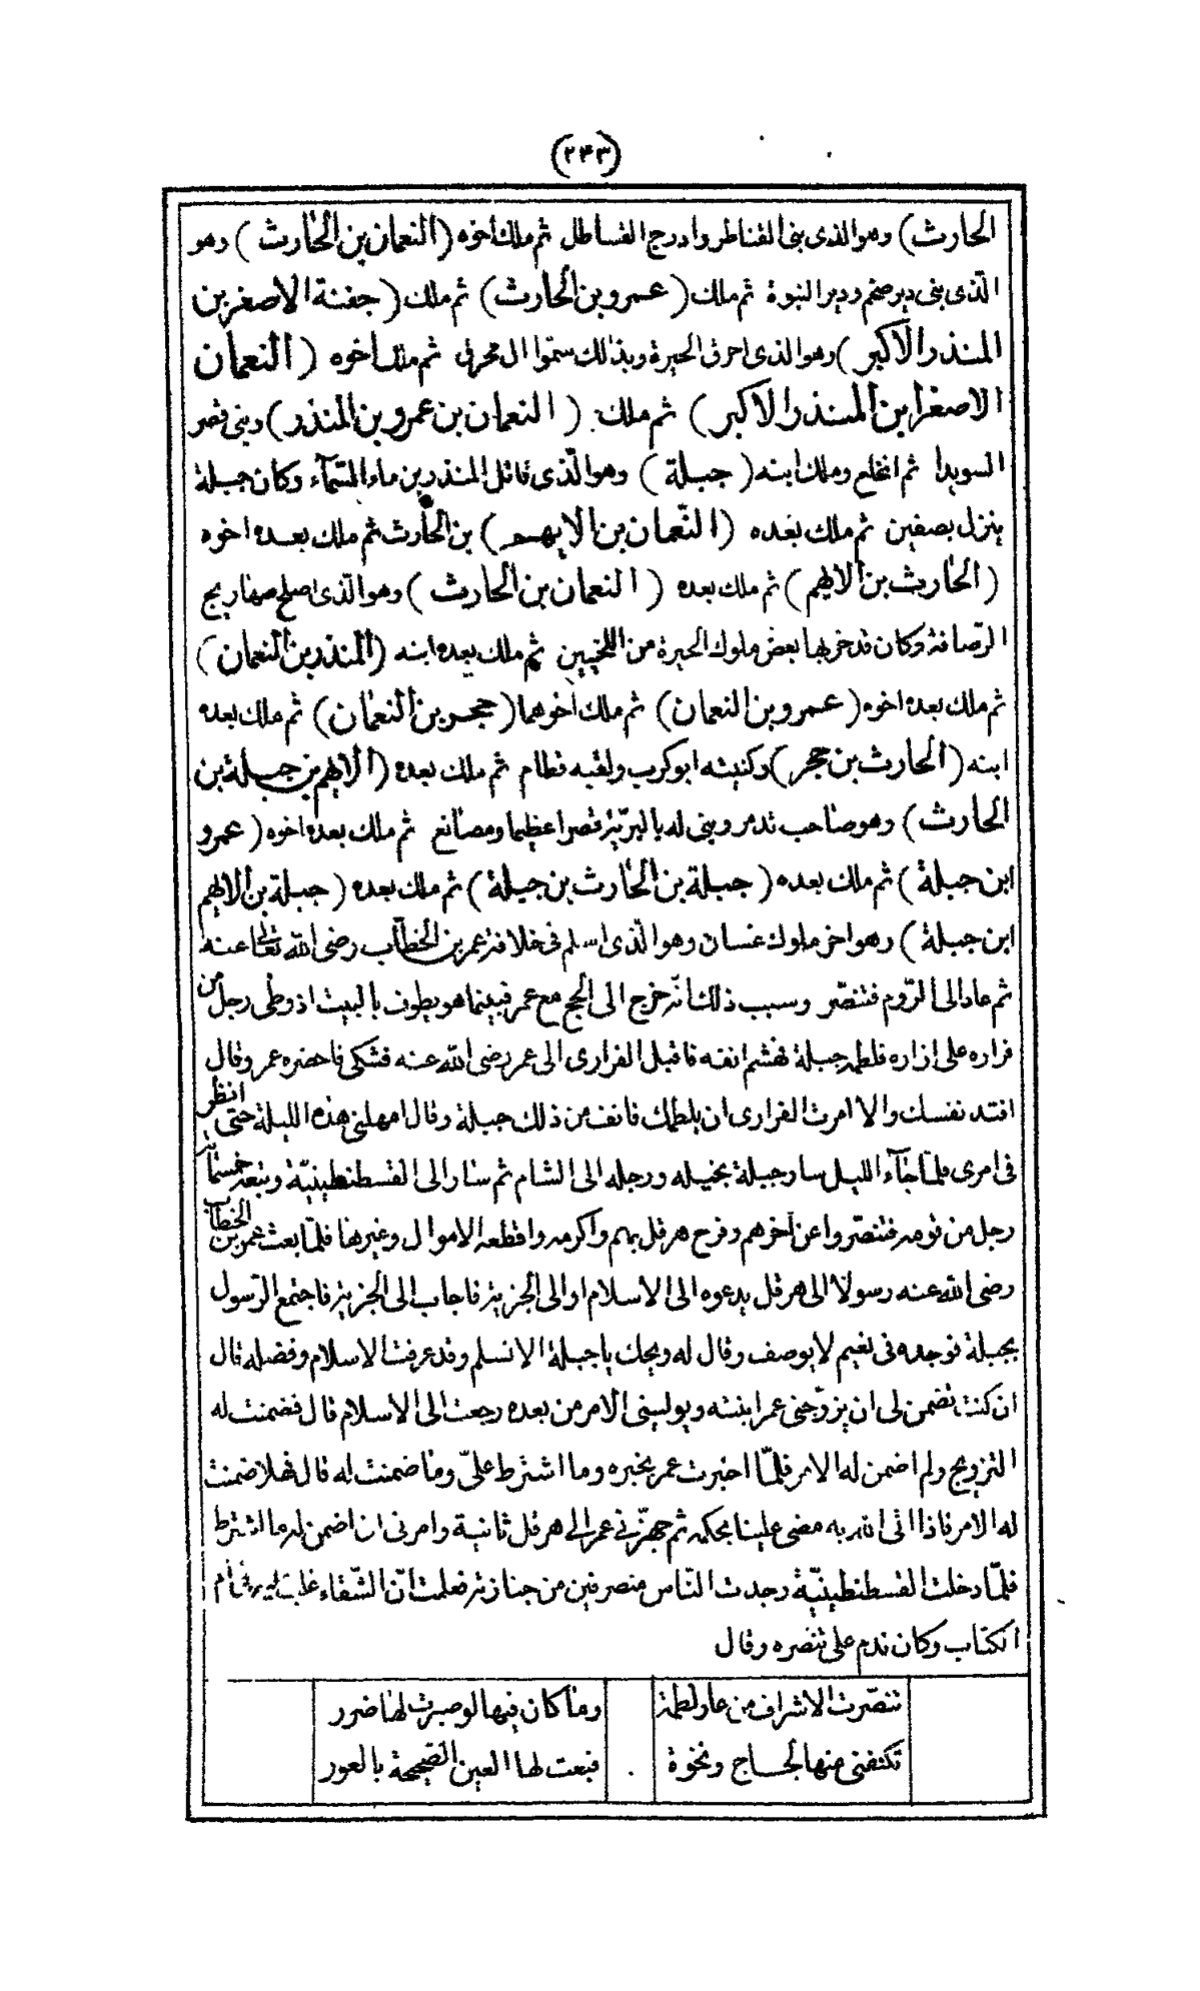 (٢٤٣)
الحارث) وهو الذى بنى القناطر وادرج القساطل ثم ملك أخوه (النعمان بن الحارث) وهو
الّذى بنى دير ضخم ودير النبوة ثم ملك (عمرو بن الحارث) ثم ملك (جفنة الاصغر بن
المنذر الاكبر) وهو الذى احرق الحيرة وبذالك سمّوا ال محرق ثم ملك أخوه (النعمان
الاصغر ابن المنذر الاكبر) ثم ملك (النعمان بن عمرو بن المنذر) وبنى قصر
السويدا ثم انخلع وملك ابنه (جبلة) وهو الّذى قاتل المنذر بن ماء السّمآء وكان جبلة
ينزل بصفين ثم ملك بعده (النّعمان بن الايهم) بن الحارث ثم ملك بعده اخوه
(الحارث بن الايهم) ثم ملك بعده (النعمان بن الحارث) وهو الّذى اصلح صهاريج
الرّصافة وكان قد خربها بعض ملوك الحيرة من اللخميين ثم ملك بعده ابنه (المنذر بن النعمان)
ثم ملك بعده اخوه (عمرو بن النعمان) ثم ملك أخوهما (حجر بن النعمان) ثم ملك بعده
ابنه (الحارث بن حجر) وكنيته ابو كرب ولقبه قطام ثم ملك بعده (الايهم بن جبلة بن
الحارث) وهو صاحب تدمر وبنى له بالبرّيّة قصرا عظيما ومصانع ثم ملك بعده اخوه (عمرو
ابن جبلة) ثم ملك بعده (جبلة بن الحارث بن جبلة) ثم ملك بعده (جبلة بن الايهم
ابن جبلة) وهو اخر ملوك غسان وهو الّذى اسلم فى خلافة عمر بن الخطّاب رضى اللّه تعالى عنه
ثم عاد الى الرّوم فتنصّر وسبب ذلك انّه خرج الى الحج مع عمر فبينما هو يطوف بالبيت اذ وطى رجل من
فزاره على ازاره فلطمه جبلة فهشم انفه فاقبل الفزارى الى عمر رضى اللّه عنه فشكى فاحضره عمر وقال
افتد نفسك والا امرت الفزارى ان يلطمك فانف من ذلك جبلة وقال امهلنى هذه الليلة حتى انظر
فى امرى فلمّا جآء الليل سار جبلة بخيله ورجله الى الشام ثم سار الى القسطنطينيّة وتبعه خمسمائة
رجل من قومه فتنصّروا عن آخرهم وفرح هرقل بهم واكرمه واقطعه الاموال وغيرها فلمّا بعث عمر بن الخطاب
رضى اللّه عنه رسولا الى هرقل يدعوه الى الاسلام او الى الجزية فاجاب الى الجزية فاجتمع الرّسول
بجبلة فوجده فى نعيم لا يوصف وقال له ويحك ياجبلة الا تسلم وقد عرفت الاسلام وفضله قال
ان كنت تضمن لى ان يزوّجنى عمر ابنته ويولينى الامر من بعده رجعت الى الاسلام قال فضمنت له
التزويج ولم اضمن له الامر فلمّا اخبرت عمر بخبره وما اشترط علىّ وما ضمنت له قال فهلا ضمنت
له الامر فاذا اتى اللّه به مضى علينا بحكمه ثم جهّزنى عمر الى هرقل ثانية وامرنى ان اضمن له ما اشترط
فلمّا دخلت القسطنطينيّة وجدت النّاس منصرفين من جنازته فعلمت انّ الشّقاء غلب عليه فى أم
الكتاب وكان ندم على تنصّره وقال
تنصّرت الاشراف من عار لطمة وما كان فيها لو صبرت لها ضرر
تكنفنى منها لجاج ونخوة فبعت لها العين الصّحيحة بالعور